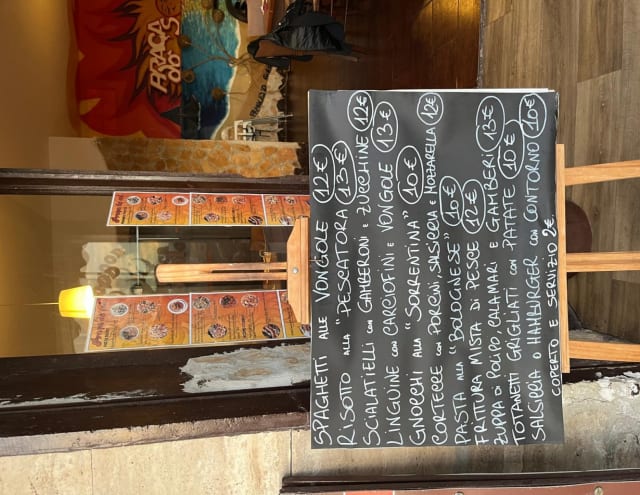 SPAGHETTI ALLE VONGOLE 12€
RISOTTO ALLA "PESCATORA" 13€
SCIALATIELLI CON GAMBERONI E ZUCCHINE 12€
LINGUINE CON CARCIOFINI E VONGOLE 13€
GNOCCHI ALLA "SORRENTINA" 10€
CORTECCE CON PORCINI, SALSICCIA E MOZZARELLA 12€
PASTA ALLA "BOLOGNESE" 10€
FRITTURA MISTA DI PESCE 12€
ZUPPA DI POLIPO, CALAMARI E GAMBERI 13€
TOTANETTI GRIGLIATI CON PATATE 10€
SALSICCIA O HAMBURGER CON CONTORNO 10€
COPERTO E SERVIZIO 2€.
PRAÇA
DO'S